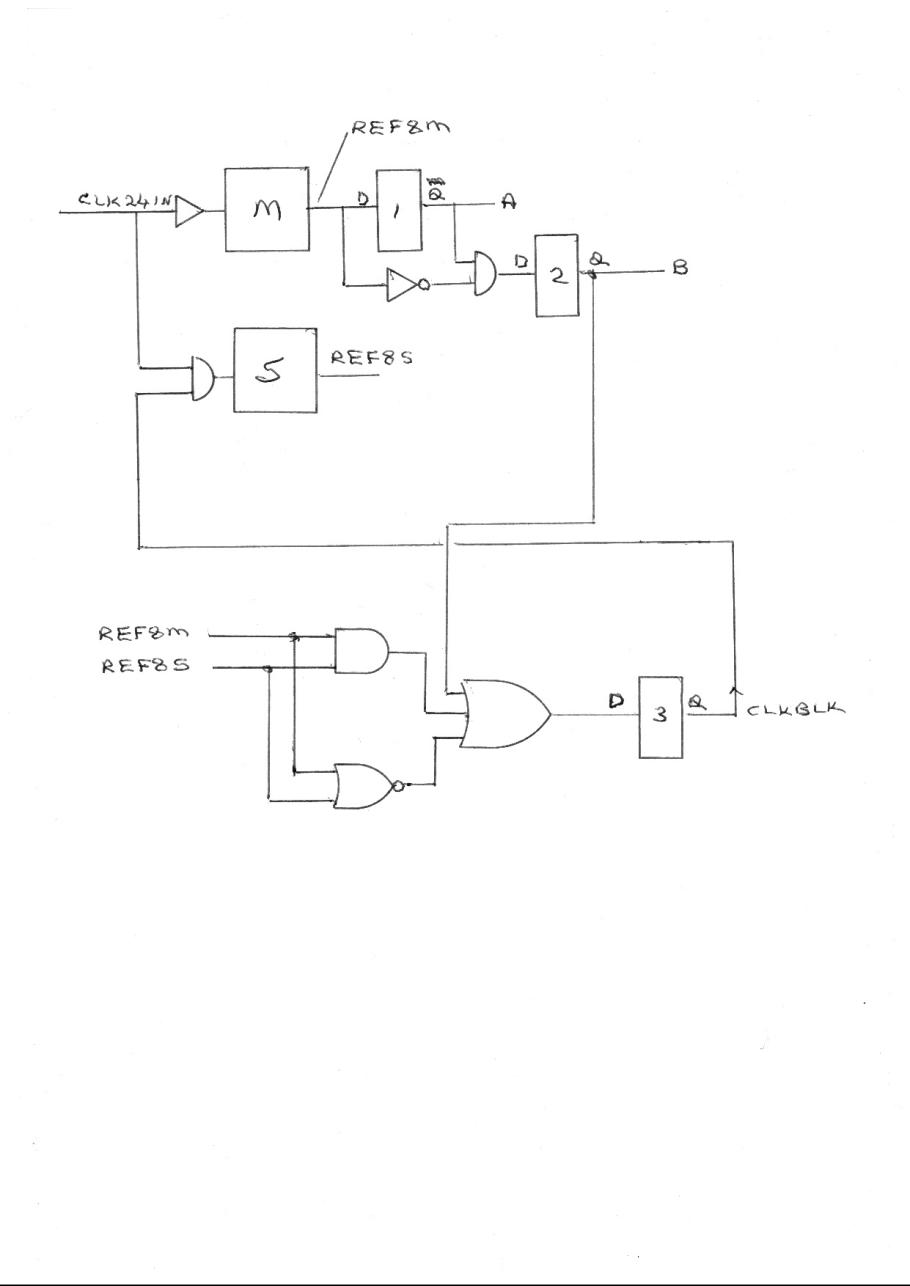 REF8M
CLK24IN
M
D
1
Q
A
D
2
Q
B
S
REF8S
REF8M
REF8S
D
3
Q
CLKBLK